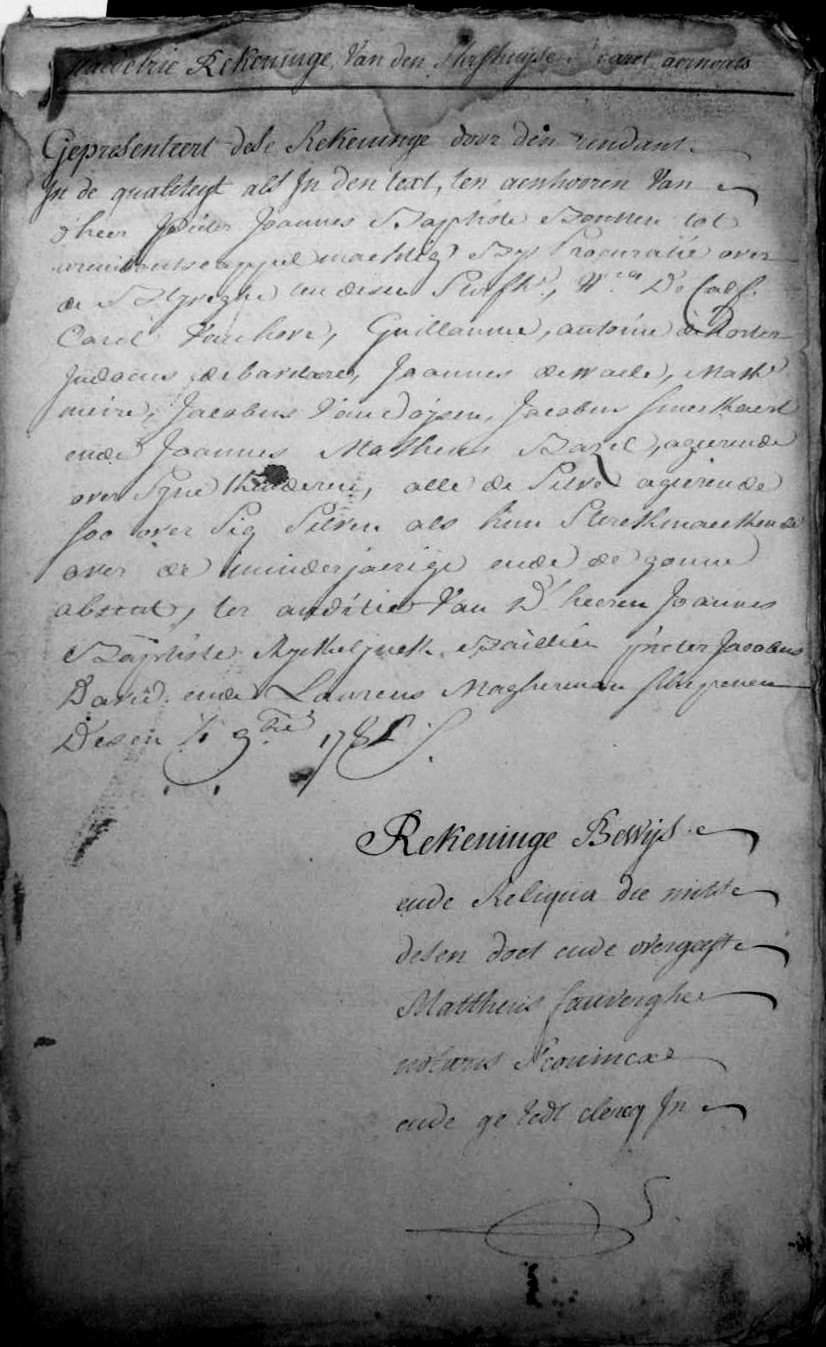 Rekeninge Van den Sterfhuyse carel aernouts
Gepresenteert dese Rekeninge door den rendant
In de qualiteyt als In den text, ten aenhooren Van
d'heer Pieter Joannes Baptiste tot
machtig By Procuratie over
de ten desen Sterfh:,
Carel Vanhove, Guillaume, antoine de
Judocus debackere, Joannes dewaele, Math:
meire, Jacobus Van Doysen, Jacobus
ende Joannes Matheus Bazel, agerende
over Syne Kinderen, alle de Selve agerende
soo over Sig Selven als hun Sterckmaeckende
over de minderjaerige ende de gonne
absent, ter auditie Van D'heeren Joannes
Baptiste Ryckelynck Bailliu pieter Jacobus
David ende Laureus Magherman schepenen
Desen 9bre
Rekeninge Bewijs
ende Reliqua die midts
desen doet ende overgeeft
Mattheus Sauverghe
notaris
ende ge clercq In